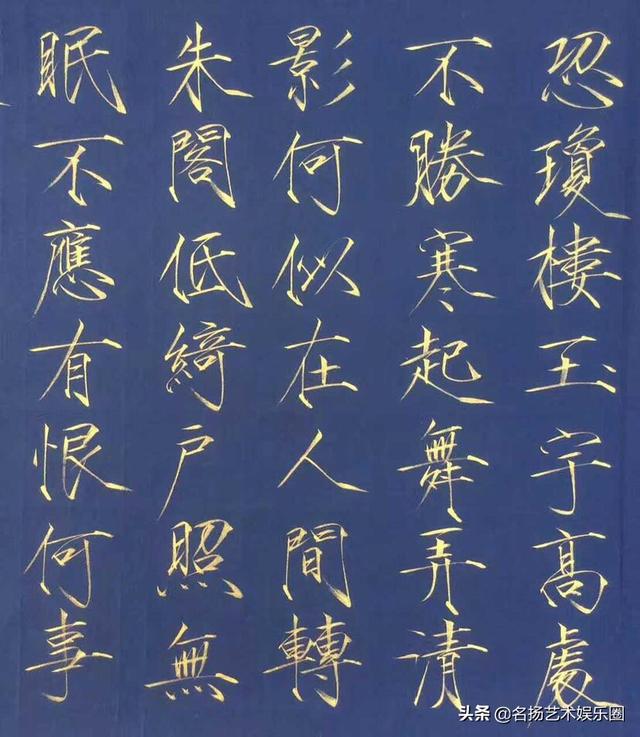 恐瓊樓玉宇高處
不勝寒起舞弄清
影何似在人間轉
朱閣低綺戶照無
眠不應有恨何事
头条 @名扬艺术娱乐圈